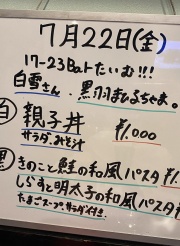 7月22日(金)
17-23Barたいむ!!!
白雪さん、黒羽ましろちゃま。
白 親子丼 ¥1,000
サラダ、みそ汁
黒 きのこと鮭の和風パスタ ¥1.
しらすと明太子の和風パスタ
たまごスープ、サラダ付き